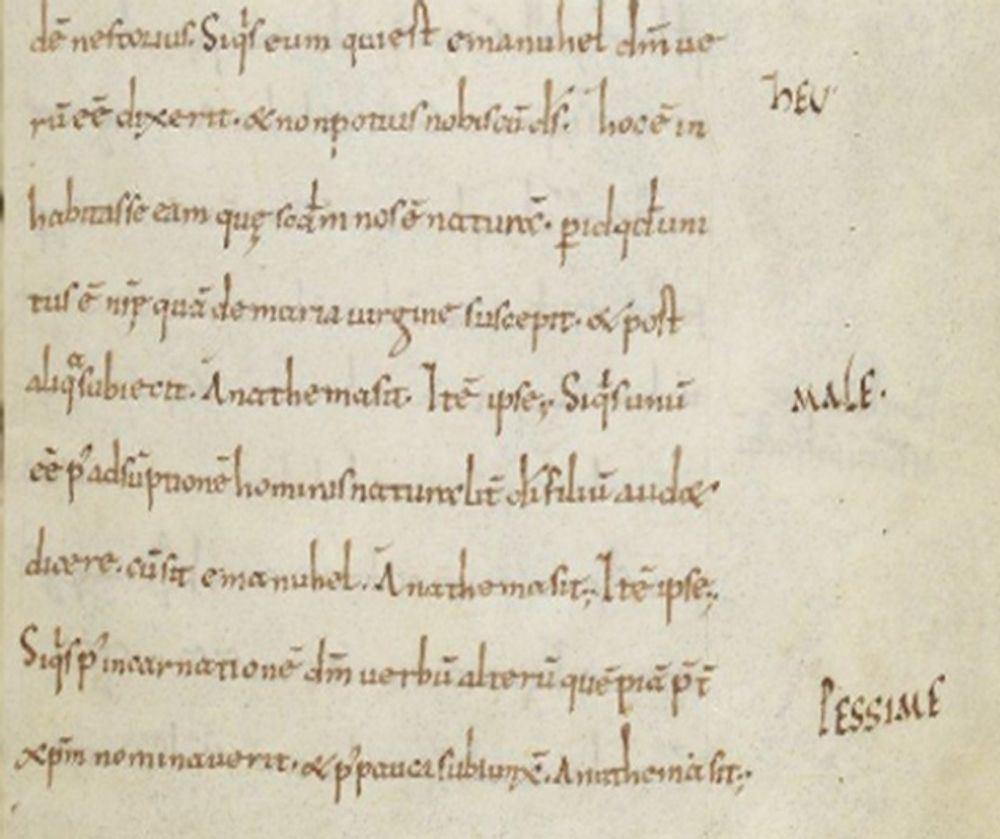 dē nestorius. Siqͥs eum qui est emanuhel dm̄ ue
rū eē dixerit. & non potius nobiscū ds̄. hoc ē in
heu
habitasse eam quę scdm̄ nos ē naturā. ꝑ id qd̄ uni
tus ē nr̄ę quā de maria uirgine suscepit. & post
aliqͣ subierit. Anathema sit. Itē ipse; Siqͥs unū
MALE.
eē p' adsūptionē hominis naturā lit̄ di filiū aud&
dicere. cū sit emanuhel. Anathema sit; Itē ipse;
Siqͥs p' incarnationē dm̄ uerbū alterū quēpiā p̄t̄
PESSIME
xpm̄ nominauerit. & p' pauca subiunx̄. Anathema sit;